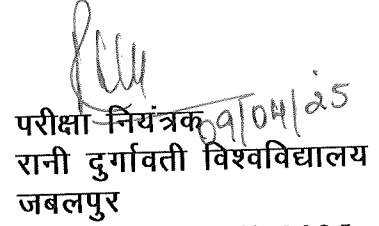 09/04/25
परीक्षा नियंत्रक
रानी दुर्गावती विश्वविद्यालय
जबलपुर